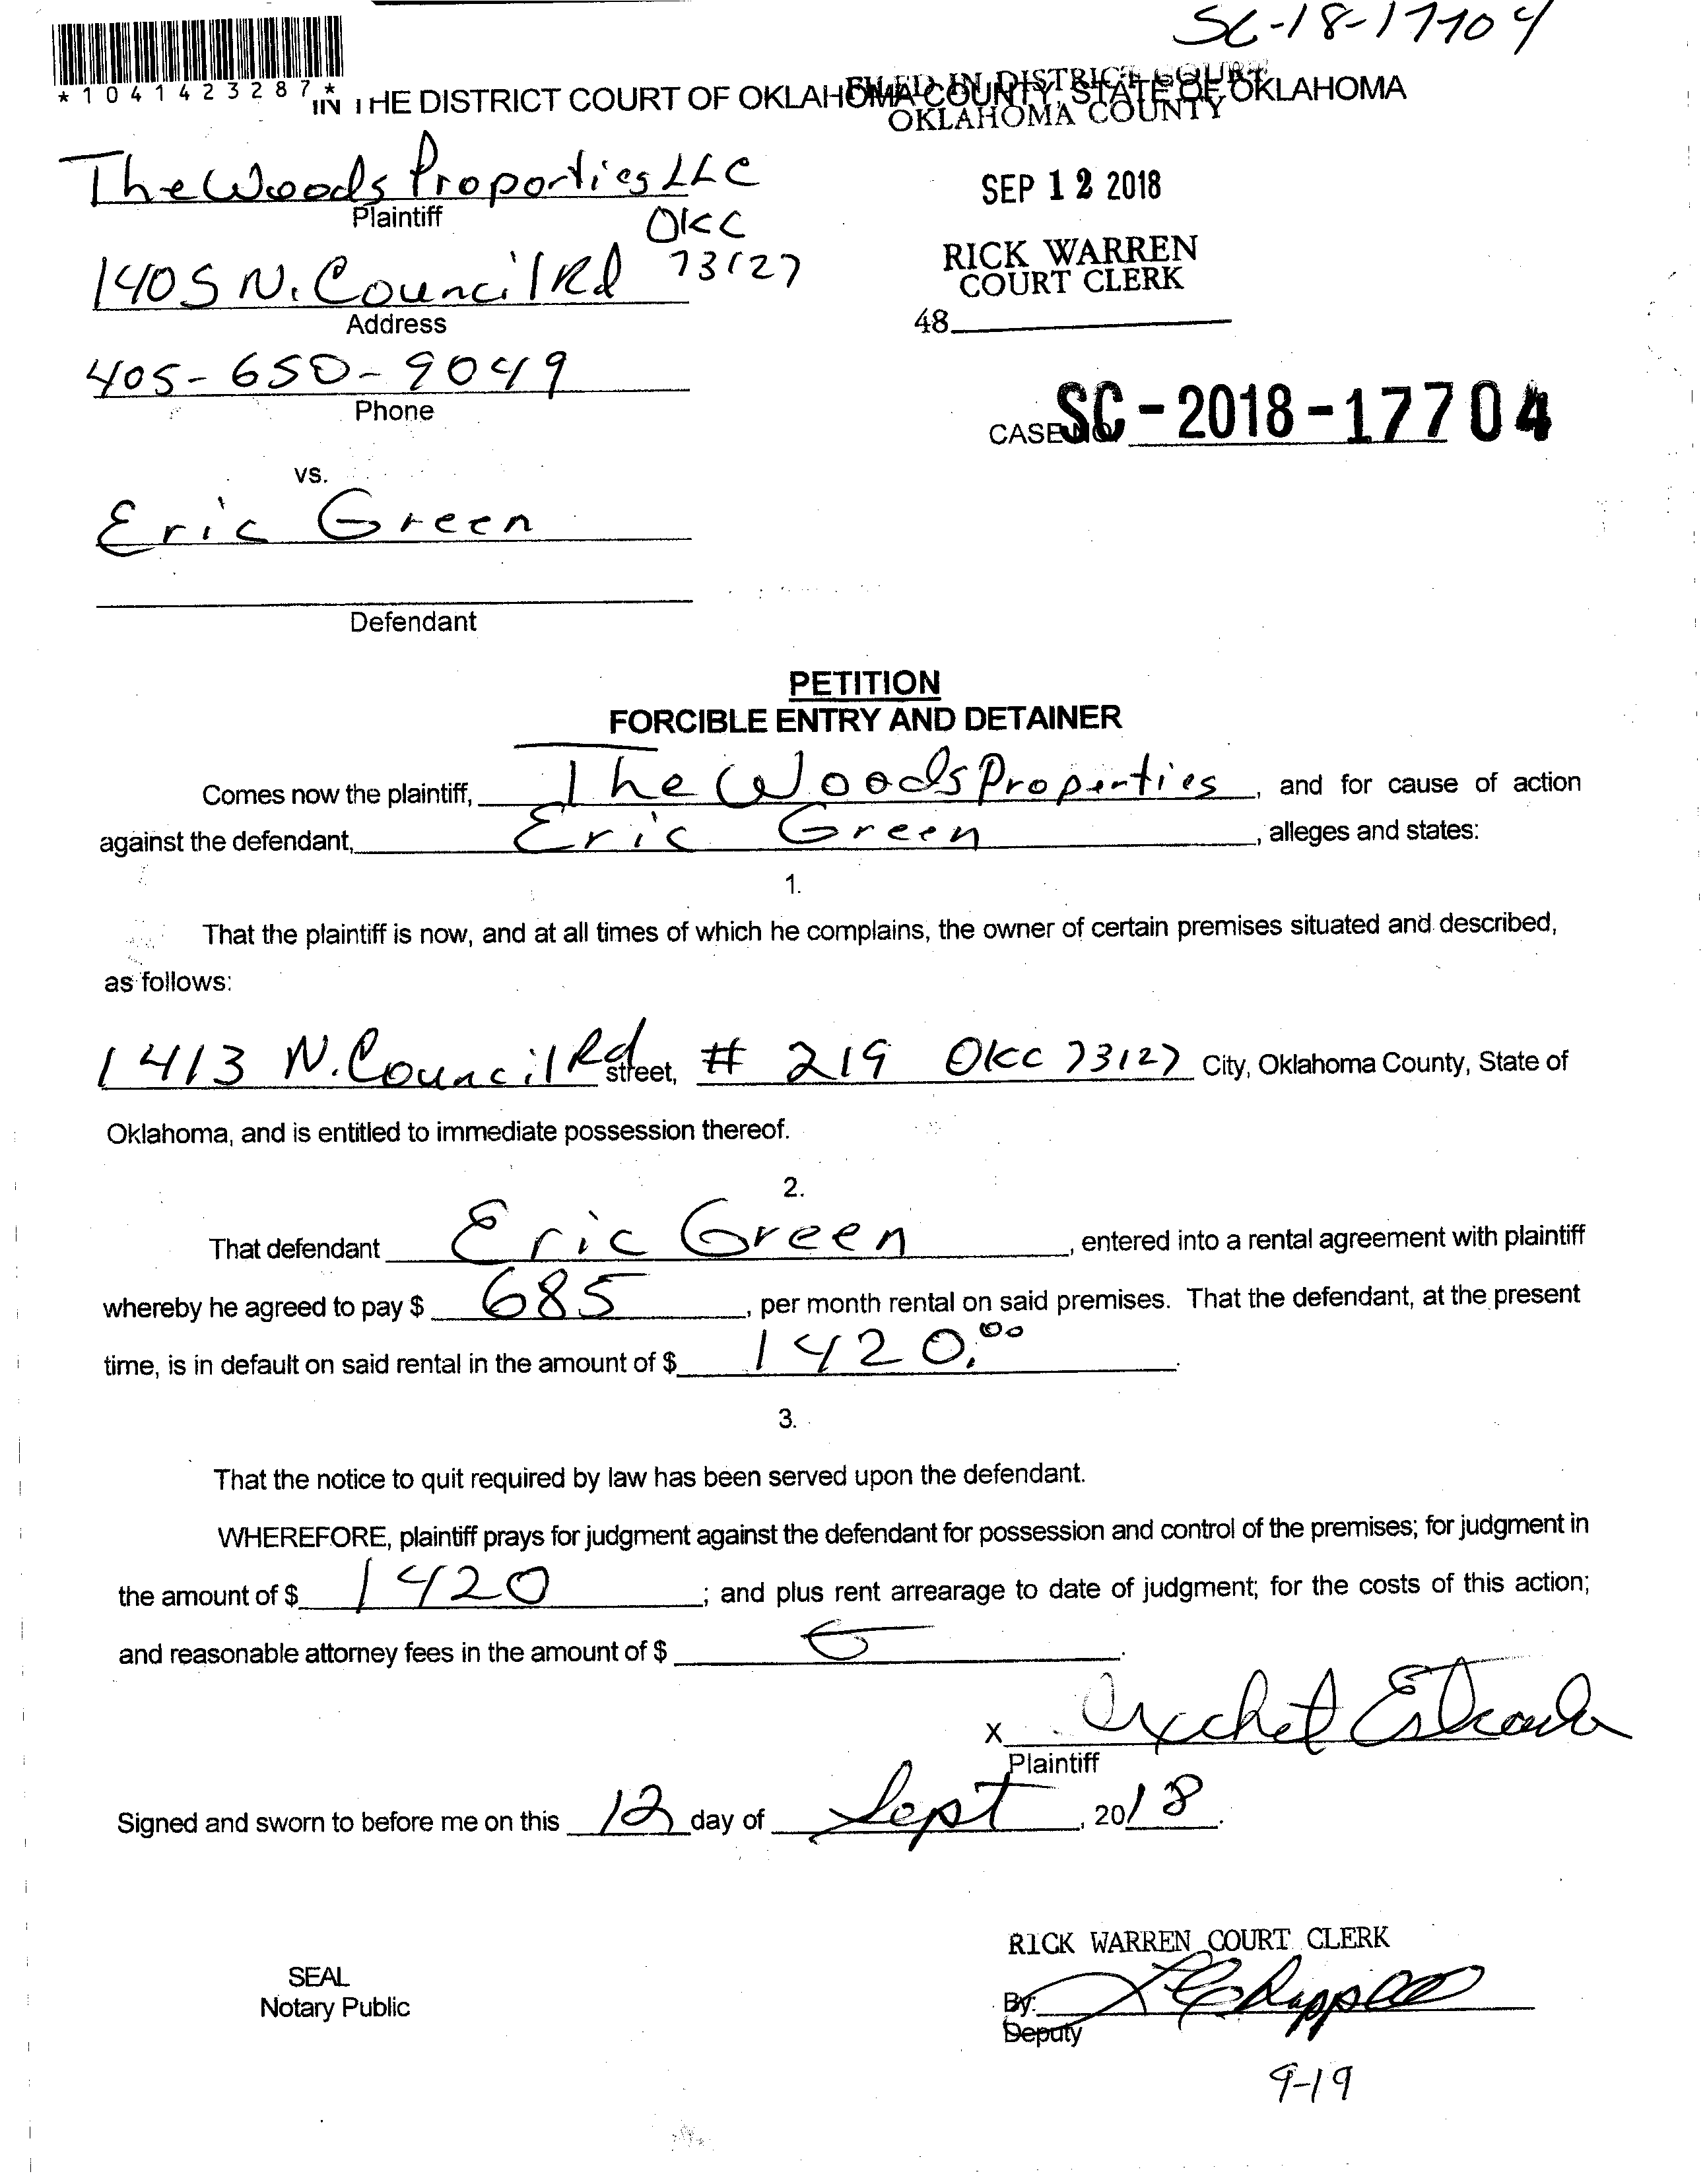 SC-18-17704
*1041423287*
IN THE DISTRICT COURT OF OKLAHOMA COUNTY, STATE OF OKLAHOMA
FILED IN DISTRICT COURT
OKLAHOMA COUNTY
The Woods Properties LLC
Plaintiff
SEP 12 2018
OKC
1405 N. Council Rd 73127
Address
RICK WARREN
COURT CLERK
48
405-650-9049
Phone
CASE NO. SC-2018-17704
vs.
Eric Green
Defendant
PETITION
FORCIBLE ENTRY AND DETAINER
Comes now the plaintiff, The Woods Properties, and for cause of action
against the defendant, Eric Green, alleges and states:
1.
That the plaintiff is now, and at all times of which he complains, the owner of certain premises situated and described,
as follows:
1413 N. Council Rd street, # 219 OKC 73127 City, Oklahoma County, State of
Oklahoma, and is entitled to immediate possession thereof.
2.
That defendant Eric Green, entered into a rental agreement with plaintiff
whereby he agreed to pay $ 685, per month rental on said premises. That the defendant, at the present
time, is in default on said rental in the amount of $ 1420.00.
3.
That the notice to quit required by law has been served upon the defendant.
WHEREFORE, plaintiff prays for judgment against the defendant for possession and control of the premises; for judgment in
the amount of $ 1420; and plus rent arrearage to date of judgment; for the costs of this action;
and reasonable attorney fees in the amount of $
X Ixchet Estrada
Plaintiff
Signed and sworn to before me on this 12 day of Sept, 2018.
RICK WARREN COURT CLERK
SEAL
Notary Public
By:
Deputy
9-19